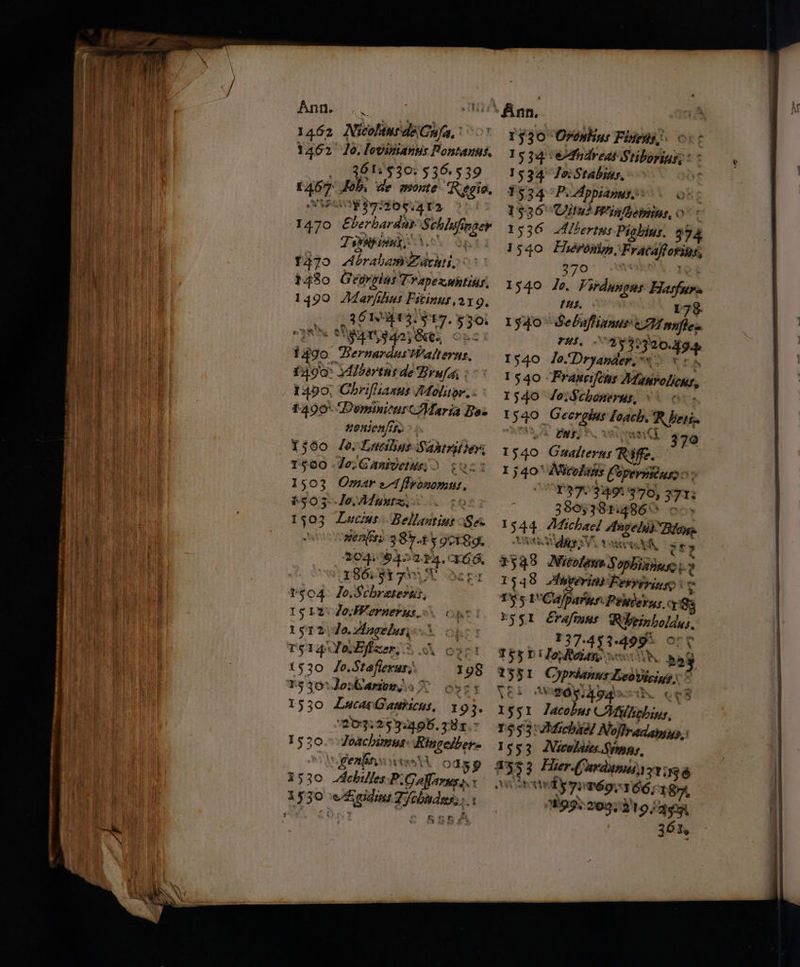 Ann.
1462 Nicolaus de Cusa,
1462 Io. Iovinianus Pontanus,
361. 530. 536. 539
1467 Joh. de monte Regio,
412
1470 Eberhardus Schlusinger
1470 Abraham Zacuti,
1480 Georgius Trapezuntius,
1490 Marsilius Ficinus, 219.
517. 530.
1490 Bernardus Walterus.
1490 Albertus de Brusa,
1490, Christianus Molitor.
1490 Dominicus Maria Bo-
noniensis
1500 Io. Lucilius Santritter,
1500 Io. Ganivetus,
1503 Omar Astronomus,
1503 Io. Muntz,
1503 Lucius Bellantius Se-
nensis 387. 189.
166,
1504 Io. Schraterus,
1512 Io. Wernerus.
1512 Io. Angelus,
1514 Io. Essler,
1530 Io. Stoflerus, 198
1530 Io. Carion,
1530 Lucas Gauricus, 193.
203. 253. 496. 381.
1530 Joachimus Ringelber-
459
1530 Achilles P. Gassarus,
1530 Ægidius Tschudus,
Ann.
1530 Orontius Fineus,
1534 Andreas Stiborius,
1534 Io. Stabius,
1534 P. Appianus,
1536 Vitus Winshemius,
1536 Albertus Pighius. 374
1540 Hieronym. Fracastorius,
370
1540 Io. Virdungus Hasfurs
tus. 178
1540 Sebastianus Munste-
rus. 253. 320. 494
1540 Io. Dryander,
1540 Franciscus Maurolicus,
1540 Io. Schonerus,
1540 Georgius Ioach. Rheti-
cus, 370
1540 Gualterus Riffe.
1540 Nicolaus Copernicus
137. 349. 370, 371.
380, 381. 486
1544 Michael Angelus Blon-
dus,
1548 Nicolaus Sophianus
1548 Augerius Ferrerius
1551 Casparus Peucerus. 83
1551 Erasmus Rheinholdus.
137. 453. 499.
1551 Io. Roian,
1551 Cyprianus Leovicius,
1551 Iacobus Milichius,
1553 Michael Nostradamus,
1553 Nicolaus Simus,
1553 Hier. Cardanus,
169. 166. 187,
199. 209. 219.
361,